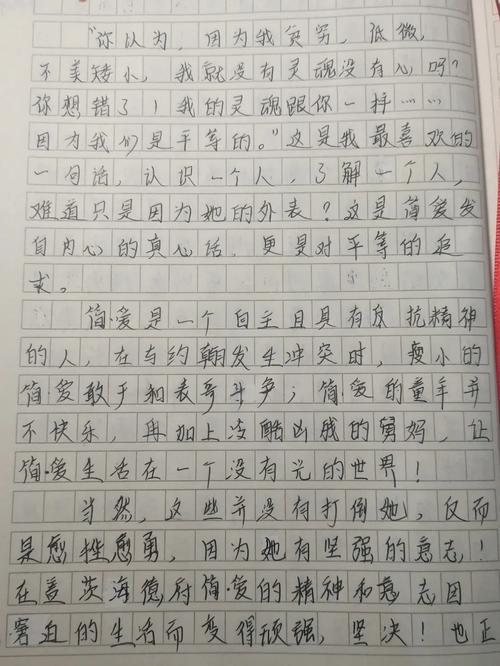 “你认为，因为我贫穷，低微，
不美矮小，我就没有灵魂没有心吗？
你想错了！我的灵魂跟你一样……
因为我们是平等的。”这是我最喜欢的
一句话，认识一个人，了解一个人，
难道只是因为她的外表？这是简爱发
自内心的真心话，更是对平等的追
求。
简·爱是一个自主且具有反抗精神
的人，在与约翰发生冲突时，瘦小的
简·爱敢于和表哥斗争；简·爱的童年并
不快乐，再加上冷酷凶残的舅妈，让
简·爱生活在一个没有光的世界！
当然，这些并没有打倒她，反而
是愈挫愈勇，因为她有坚强的意志！
在盖茨海德府简·爱的精神和意志因
窘迫的生活而变得顽强，坚决！也正